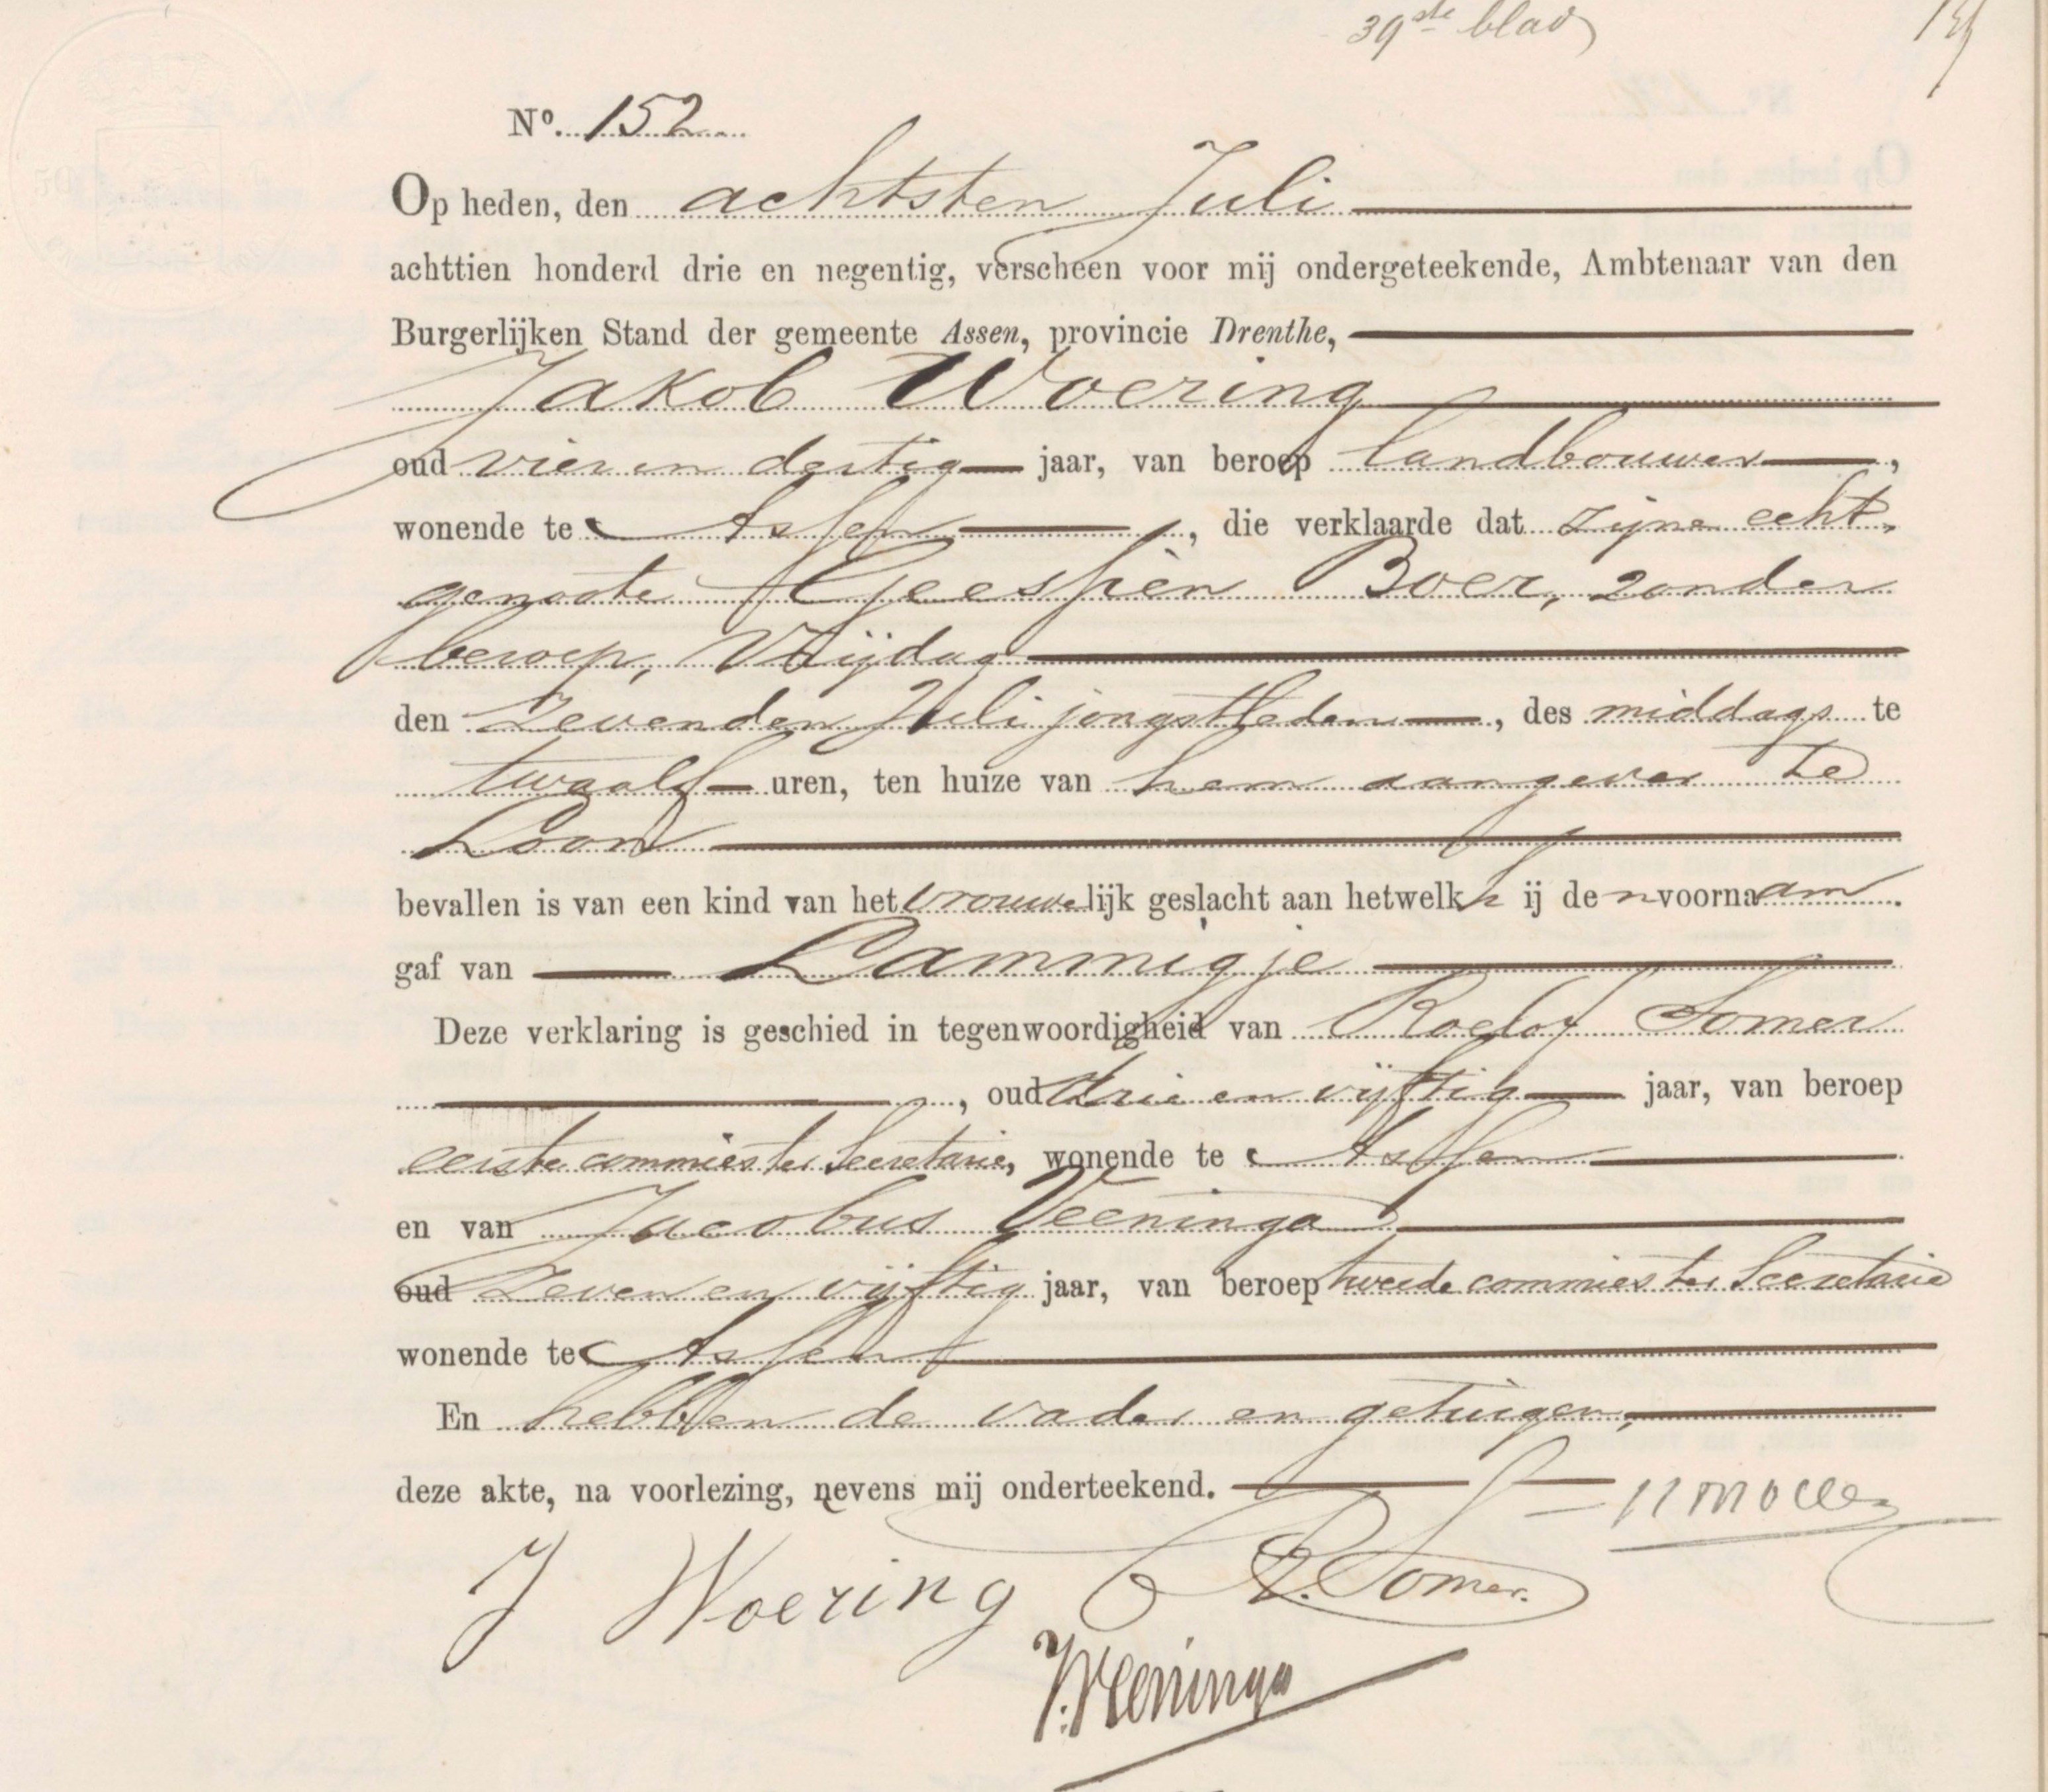 39ste blad
No. 152
Op heden, den achtsten Juli
achttien honderd drie en negentig, verscheen voor mij ondergeteekende, Ambtenaar van den
Burgerlijken Stand der gemeente Assen, provincie Drenthe,
Jakob Woering
oud vier en dertig jaar, van beroep landbouwer,
wonende te Assen, die verklaarde dat zijne echt-
genoote Geessien Boer, zonder
beroep, Vrijdag
den zevenden Juli jongstleden, des middags te
twaalf uren, ten huize van hem aangever te
Loon
bevallen is van een kind van het vrouwelijk geslacht aan hetwelk hij den voornaam
gaf van Lammigje
Deze verklaring is geschied in tegenwoordigheid van Roelof Somer
, oud drie en vijftig jaar, van beroep
eerste commies ter Secretarie, wonende te Assen
en van Jacobus Veeninga
oud zeven en vijftig jaar, van beroep tweede commies ter Secretarie
wonende te Assen
En hebben de vader en getuigen,
deze akte, na voorlezing, nevens mij onderteekend.
J Woering R. Somer.
J. Veeninga